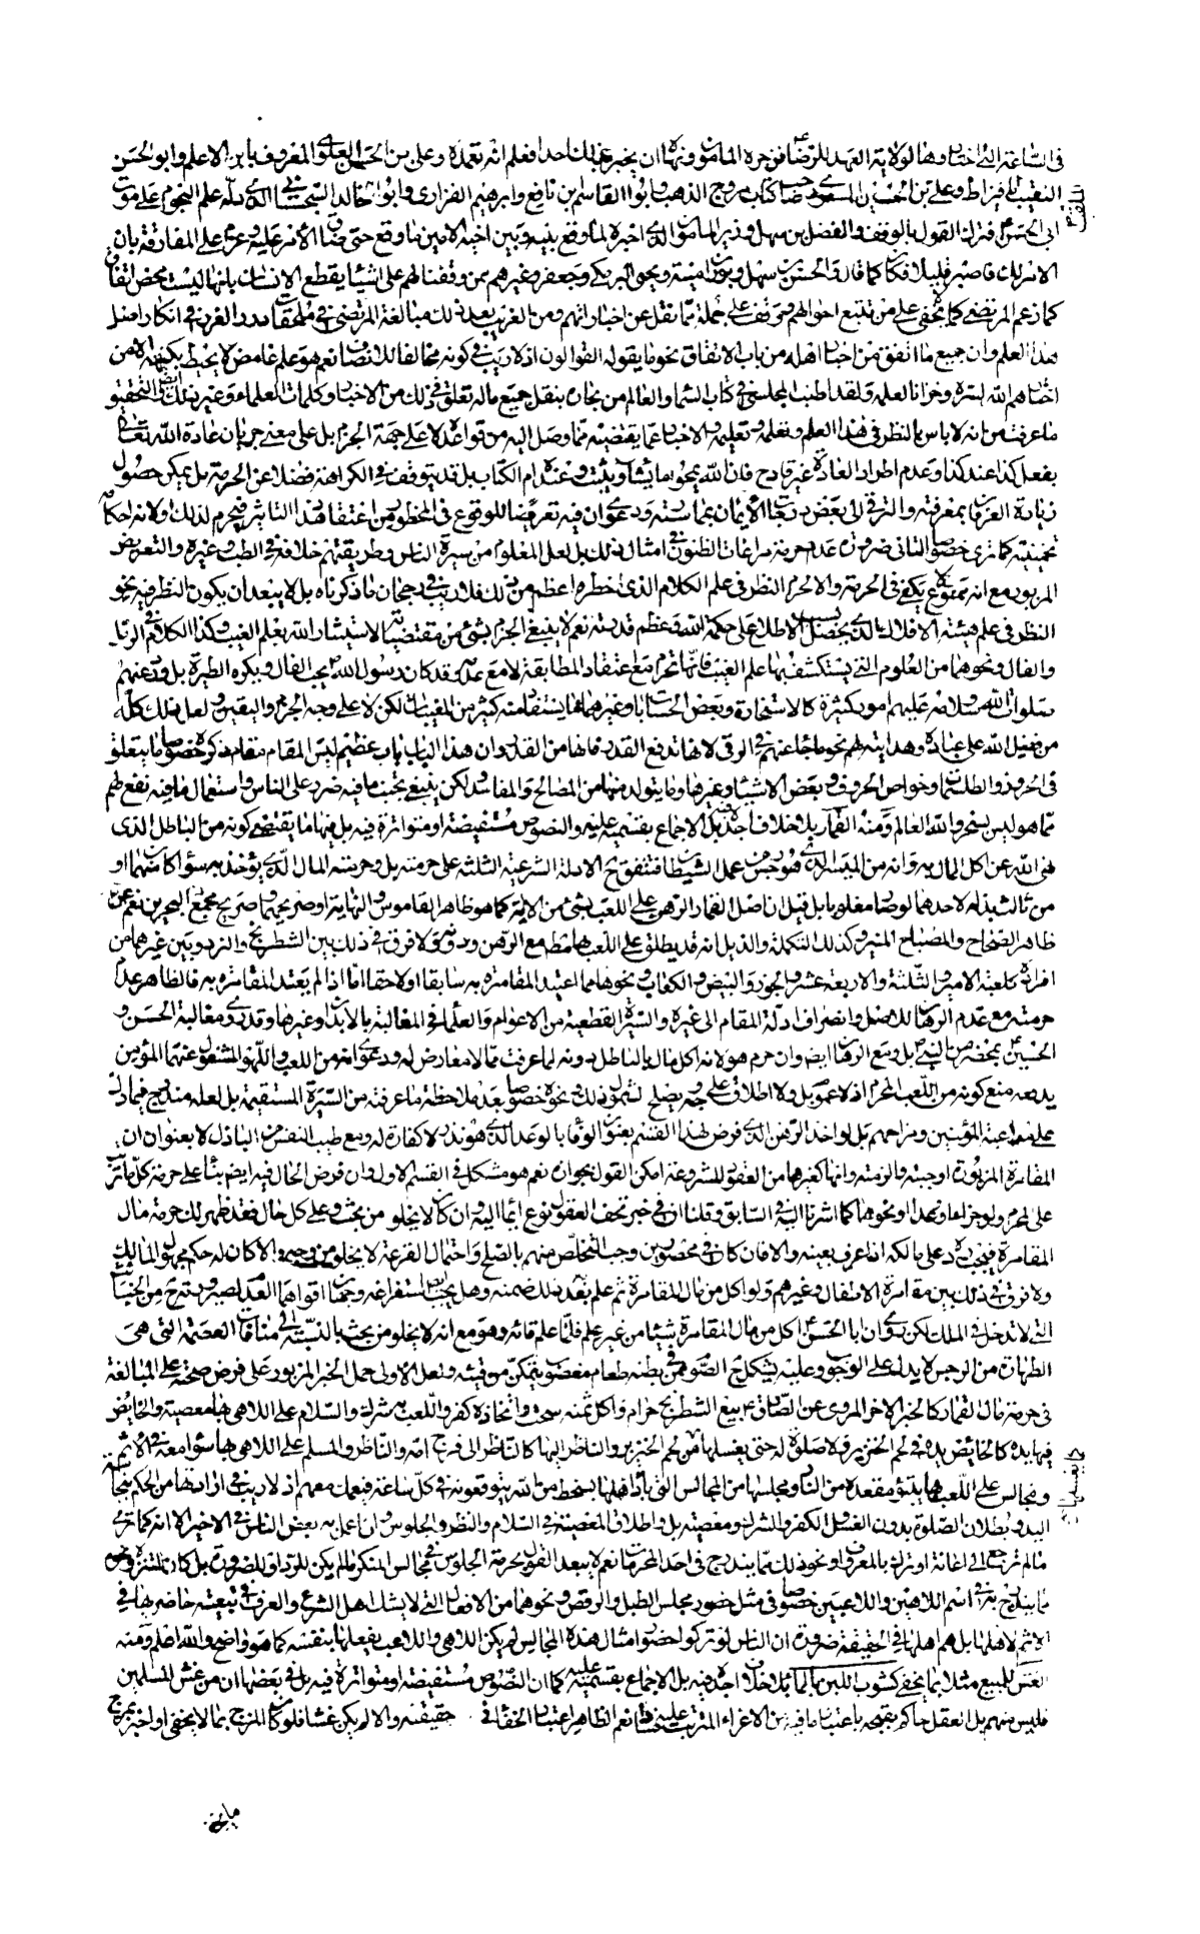 في الساعة التي اختارها لولاية العهد للرضا فزجره المأمون ونهاه ان يخبر بذلك احدا فعلم انه تعمده وعلي بن الحسن العلوي المعروف بابن الاعلم وابو الحسن
النقيب وعلي بن الحسين المسعودي صاحب كتاب مروج الذهب وابو القاسم بن نافع وابرهيم الفزاري وابو خالد السجستاني الذي دله علم النجوم على موت
ابي الحسن فترك القول بالوقف والفضل بن سهل وزير المأمون الذي اخبره لما وقع بينه وبين اخيه الامين ما وقع حتى ضاق الامر عليه وعزم على المفارقة بان
الامر لك فاصبر قليلا فكان كما قال والحسن بن سهل ويحيى البرمكي وجعفر وغيرهم ممن وقفنا لهم على اشياء يقطع الانسان بانها ليست محض اتفاق
كما زعم المرتضى كما لا يخفى على من تتبع احوالهم ووقف على جملة مما نقل عن اخباراتهم ومن الغريب بعد ذلك مبالغة المرتضى في الغرر في انكار اصل
هذا العلم وان جميع ما اتفق من اخبار اهله من باب الاتفاق نحو ما يقوله الفوالون اذ لا ريب في كونه مخالفا للانصاف نعم هو علم غامض لا يحيط بكنهه الا من
اختارهم الله لسره وخزانا لعلمه ولقد اطنب المجلسي في كتاب السماء والعالم من بحاره بنقل جميع ماله تعلق في ذلك من الاخبار وكلمات العلماء وغير ذلك والتحقيق
ما عرفت من انه لا باس بالنظر في هذا العلم وتعلمه وتعليمه والاخبار عما يقتضيه مما وصل اليه من قواعده لا على جهة الجزم بل على معنى جريان عادة الله تعالى
بفعل كذا عند كذا وعدم اطراد العادة غير قادح فان الله يمحو ما يشاء ويثبت وعنده ام الكتاب بل قد يتوقف في الكراهة فضلا عن الحرمة بل يمكن حصول
زيادة العرفان بمعرفته والترقي الى بعض درجات الايمان بممارسته ودعوى ان فيه تعرضا للوقوع في المحظور من اعتقاد التاثير فيحرم لذلك او لانه احكام
تخمينية كما ترى خصوصا الثاني ضرورة عدم حرمة مراعات الظنون في امثال ذلك بل لعل المعلوم من سيرة الناس وطريقتهم خلافه في الطب وغيره والتعريض
المزبور مع انه ممنوع لا يكفي في الحرمة والا لحرم النظر في علم الكلام الذي خطره اعظم من ذلك فلا ريب في رجحان ما ذكرناه بل لا يبعد ان يكون النظر فيه نحو
النظر في علم هيئة الافلاك الذي يحصل بسببه الاطلاع على حكمة الله وعظم قدرته نعم لا ينبغي الجزم بشئ من مقتضياته لاستيثار الله بعلم الغيب وكذا الكلام في الرمل
والفال ونحوهما من العلوم التي يستكشف بها علم الغيب فانها تحرم مع اعتقاد المطابقة لا مع عدمه وقد كان رسول الله يحب الفال ويكره الطيرة بل ورد عنهم
صلوات الله وسلامه عليهم امور كثيرة كالاستخارة وبعض الحسابات وغيرهما يستفاد منه كثير من المغيبات لكن لا على وجه الجزم واليقين ولعل ذلك كله
من تفضل الله على عباده وهدايته لهم نحو ما جاء عنهم في الرقى لانها تدفع القدر فانها من القدر وان هذا الباب باب عظيم ليس المقام مقام ذكره خصوصا ما يتعلق
في الحروز والطلسمات وخواص الحروف وبعض الاشياء وغيرها وما يتولد منها من المصالح والمفاسد لكن ينبغي تجنب ما فيه ضرر على الناس واستعمال ما فيه نفع لهم
مما هو ليس بسحر والله العالم ومنه القمار بلا خلاف اجده بل الاجماع بقسميه عليه والنصوص مستفيضة او متواترة فيه بل فيها ما يقتضي كونه من الباطل الذي
نهى الله عن اكل المال به وانه من الميسر الذي هو رجس من عمل الشيطان فتتفق ح الادلة الشرعية الثلثة على حرمته بل وحرمة المال الذي يؤخذ به سواء كان منهما او
من ثالث بذله لاحدهما لو صار مغلوبا بل قيل ان اصل القمار الرهن على اللعب بشئ من الآلة كما هو ظاهر القاموس والنهاية او صريحهما وصريح مجمع البحرين نعم عن
ظاهر الصحاح والمصباح المنير وكذلك التكملة والذيل انه قد يطلق على اللعب بها مطلقا مع الرهن ودونه ولا فرق في ذلك بين الشطرنج والنرد وبين غيرهما من
افراده كلعبة الامير والثلثة والاربعة عشر والجوز والبيض والكعاب ونحوها مما اعتيد المقامرة به سابقا او لاحقا اما اذا لم يعتد المقامرة به فالظاهر عدم
حرمته مع عدم الرهان للاصل وانصراف ادلة المقام الى غيره والسيرة القطعية من الاعوام والعلماء في المغالبة بالابدان وغيرها وقد روي مغالبة الحسن و
الحسين بمحضر من النبي بل ومع الرهان ايضا وان حرم هو لانه اكل مال بالباطل دونه لما عرفت مما لا معارض له ودعوى انه من اللعب واللهو المشغول عنهما المؤمن
يدفعه منع كونه من اللعب المحرم اذ لا عموم بل ولا اطلاق على وجه يصلح لشمول ذلك ونحوه خصوصا بعد ملاحظة ما عرفته من السيرة المستقيمة بل لعله مندرج فيما دل
على مداعبة المؤمنين ومزاحهم بل لو اخذ الرهن الذي فرض لهذا القسم بعنوان الوفاء بالوعد الذي هو نذر لا كفارة له ومع طيب النفس من الباذل لا بعنوان ان
المقامرة المزبورة اوجبته والزمته وانها كغيرها من العقود المشروعة امكن القول بجوازه نعم هو مشكل في القسم الاول وان فرض الحال فيه ايضا بناء على حرمة كل ما ترتب
على المحرم ولو جزاء وعهدا ونحوها كما اشرنا اليه في السابق وقلنا ان في خبر تحف العقول نوع ايماء اليه وان كان لا يخلو من بحث وعلى كل حال فقد ظهر لك حرمة مال
المقامرة فيجب رده على مالكه اذا عرف بعينه والا فان كان في محصورين وجب التخلص منهم بالصلح واحتمال القرعة لا يخلو من وجه والا كان له حكم مجهول المالك
ولا فرق في ذلك بين مقامرة الاطفال وغيرهم ولو اكل من مال المقامرة ثم علم بعد ذلك ضمنه وهل يجب استفراغه وجهان اقواهما العدم لصيرورته من الخبائث
التي لا تدخل في الملك لكن روي ان ابا الحسن اكل من مال المقامرة شيئا من غير علم فلما علم قائه وهو مع انه لا يخلو من بحث بالنسبة الى منافات العصمة التي هي
الطهارة من الرجس لا يدل على الوجوب وعليه يشكل ح الصوم ممن في بطنه طعام مغصوب يتمكن من قيئه ولعل الاولى حمل الخبر المزبور على فرض صحته على المبالغة
في حرمة مال القمار كالخبر الاخر المروي عن الصادق ع بيع الشطرنج حرام واكل ثمنه سحت واتخاذه كفر واللعب به شرك والسلام على اللاهي بها معصية والخائض
فيها يده كالخائض يده في لحم الخنزير لا صلوة له حتى يغسلها من لحم الخنزير والناظر اليها كالناظر الى فرج امه والناظر والمسلم على اللاهي بها سواء معه في الاثم
والجالس على اللعب بها يتبوء مقعده من النار ومجلسها من المجالس التي باء اهلها بسخط من الله يتوقعونه في كل ساعة فيعمك معهم اذ لا ريب في ارادتها من الحكم بنجاسة
اليد وبطلان الصلوة بدون الغسل والكفر والشرك ومعصية بل واطلاق المعصية في السلام والنظر والجلوس وان عمل به بعض الناس في الاخير الا انه كما ترى
ما لم ترجع الى اعانة او ترك بالمعروف او نحو ذلك مما يندرج في احد المحرمات نعم لا يبعد القول بحرمة الجلوس في مجالس المنكر ما لم يكن للرد او للضرورة بل كان للتنزه ونحوه
مما يندرج به في اسم اللاهين واللاعبين خصوصا في مثل حضور مجلس الطبل والرقص ونحوهما من الافعال التي لا يشك اهل الشرع والعرف في تبعية حاضريها في
الاثم لاهلها بل هم اهلها في الحقيقة ضرورة ان الناس لو تركوا حضور امثال هذه المجالس لم يكن اللاهي واللاعب يفعلها بنفسه كما هو واضح والله اعلم ومنه
الغش للبيع مثلا بما يخفى كشوب اللبن بالماء بلا خلاف اجده فيه بل الاجماع بقسميه عليه كما ان النصوص مستفيضة او متواترة فيه بل في بعضها ان من غش المسلمين
فليس منهم بل العقل حاكم بقبحه باعتبار ما فيه من الاغراء المترتب عليه نعم الظاهر اعتبار الخفاء في حقيقته والا لم يكن غشا فلو كان المزج بما لا يخفى او اخبر بمزج